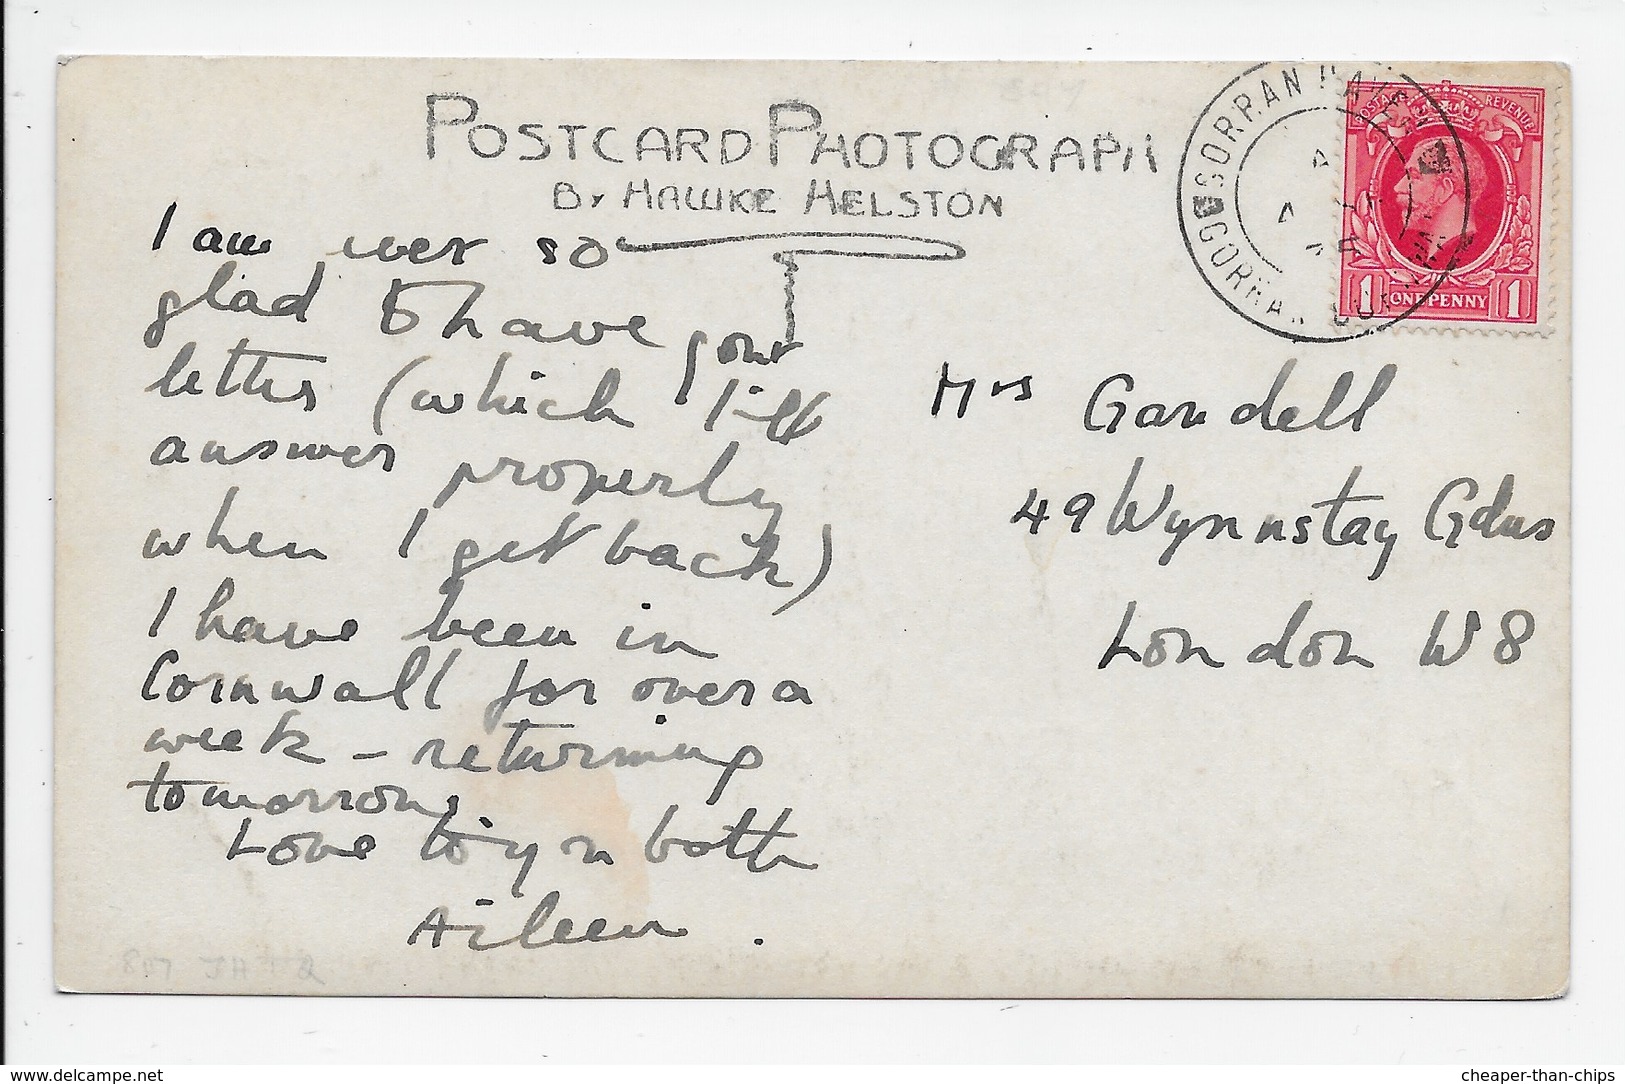 POSTCARD PHOTOGRAPH
BY HAWKE HELSTON
I am ever so
glad to have your
letter (which I'll
answer properly
when I get back)
I have been in
Cornwall for over a
week - returning
tomorrow,
Love to you both
Aileen.
POSTAGE REVENUE
1 ONE PENNY 1
GORRAN
GORRAN
Mrs Gandell
49 Wynnstay Gdns
London W8
delcampe.net
cheaper-than-chips